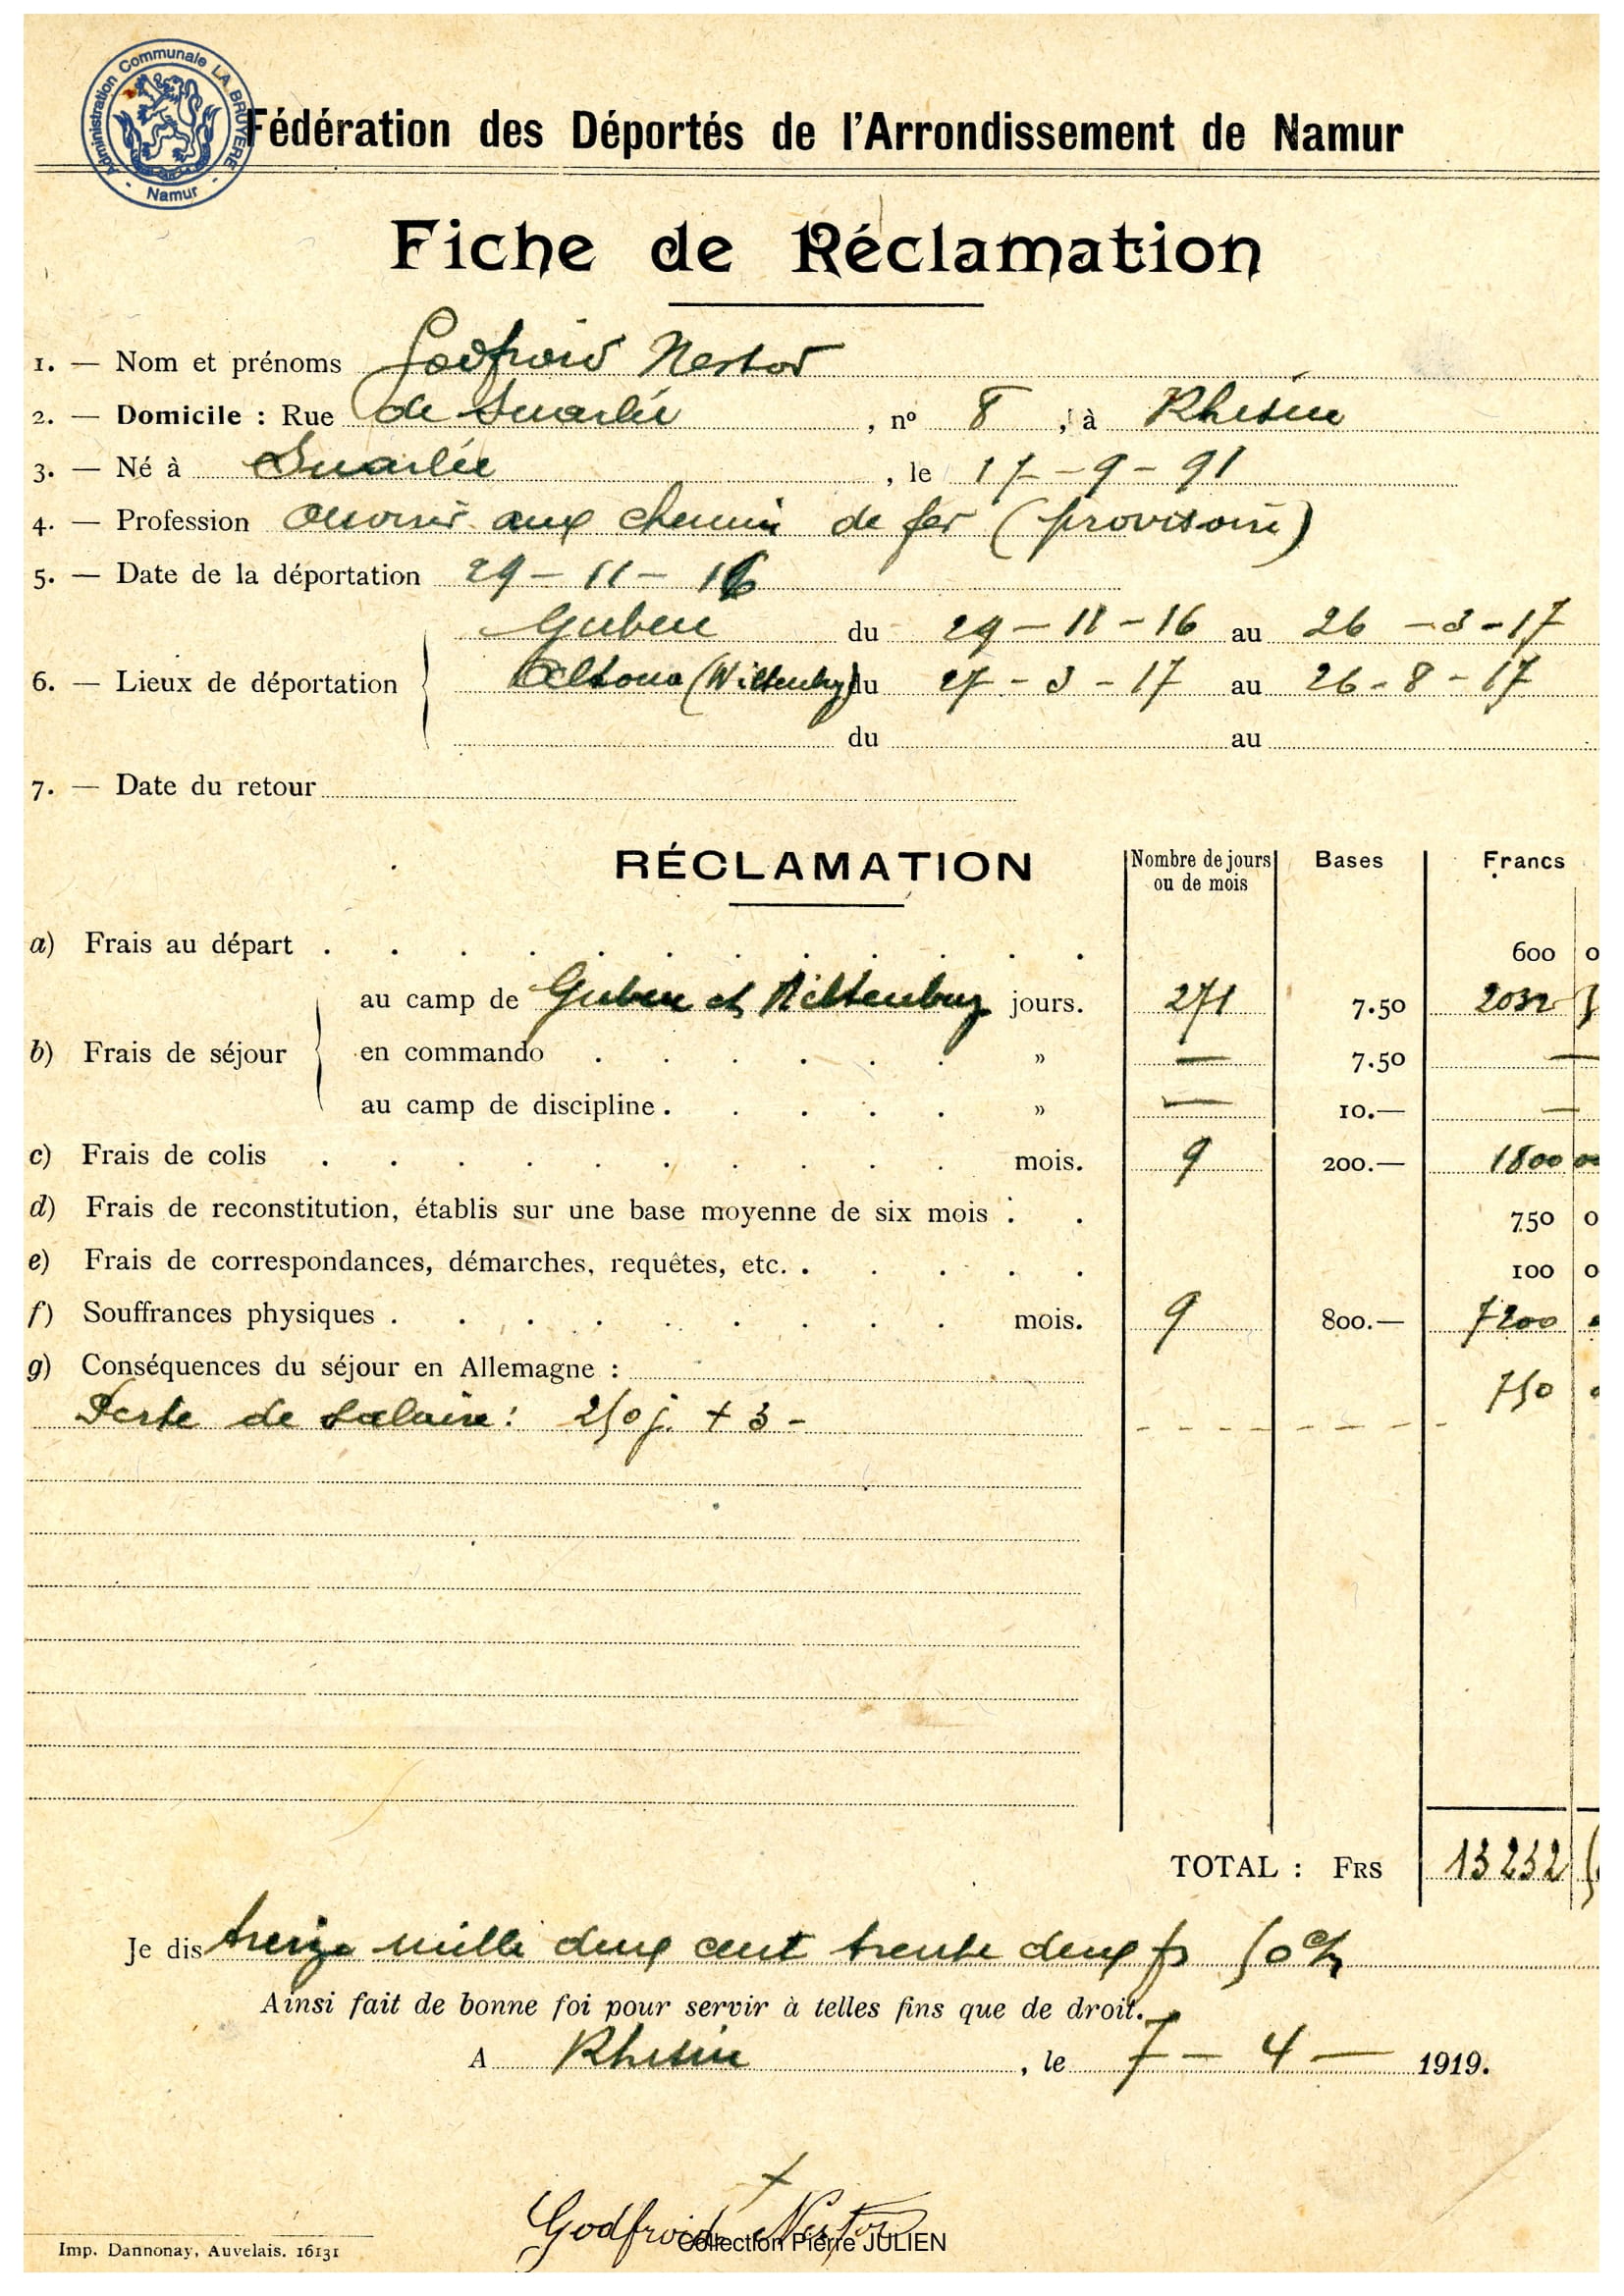 Administration Communale LA BRUYERE - Namur -
Fédération des Déportés de l'Arrondissement de Namur
Fiche de Réclamation
1. — Nom et prénoms Godfroid Nestor
2. — Domicile : Rue de Suarlée , nº 8 , à Rhisne
3. — Né à Suarlée , le 17 - 9 - 91
4. — Profession ouvrier aux chemin de fer (provisoire)
5. — Date de la déportation 29 - 11 - 16
Guben du 29 - 11 - 16 au 26 - 3 - 17
6. — Lieux de déportation Altona (Wittenberg) du 27 - 3 - 17 au 26 - 8 - 17
du au
7. — Date du retour
RÉCLAMATION Nombre de jours ou de mois Bases Francs
a) Frais au départ . . . . . . . . . . . . 600 0
au camp de Guben et Wittenburg jours. 271 7.50 2032 5
b) Frais de séjour en commando . . . . . . » — 7.50 —
au camp de discipline . . . . . » — 10.— —
c) Frais de colis . . . . . . . . . . mois. 9 200.— 1800 00
d) Frais de reconstitution, établis sur une base moyenne de six mois . . 750 0
e) Frais de correspondances, démarches, requêtes, etc. . . . . . 100 0
f) Souffrances physiques . . . . . . . . . mois. 9 800.— 7200
g) Conséquences du séjour en Allemagne :
Perte de salaire : 250 j. + 3 - 750
TOTAL : FRS 13232 5
Je dis treize mille deux cent trente deux fs 50 c/m
Ainsi fait de bonne foi pour servir à telles fins que de droit.
A Rhisne , le 7 - 4 — 1919.
Godfroid Nestor
Collection Pierre JULIEN
Imp. Dannonay, Auvelais. 16131